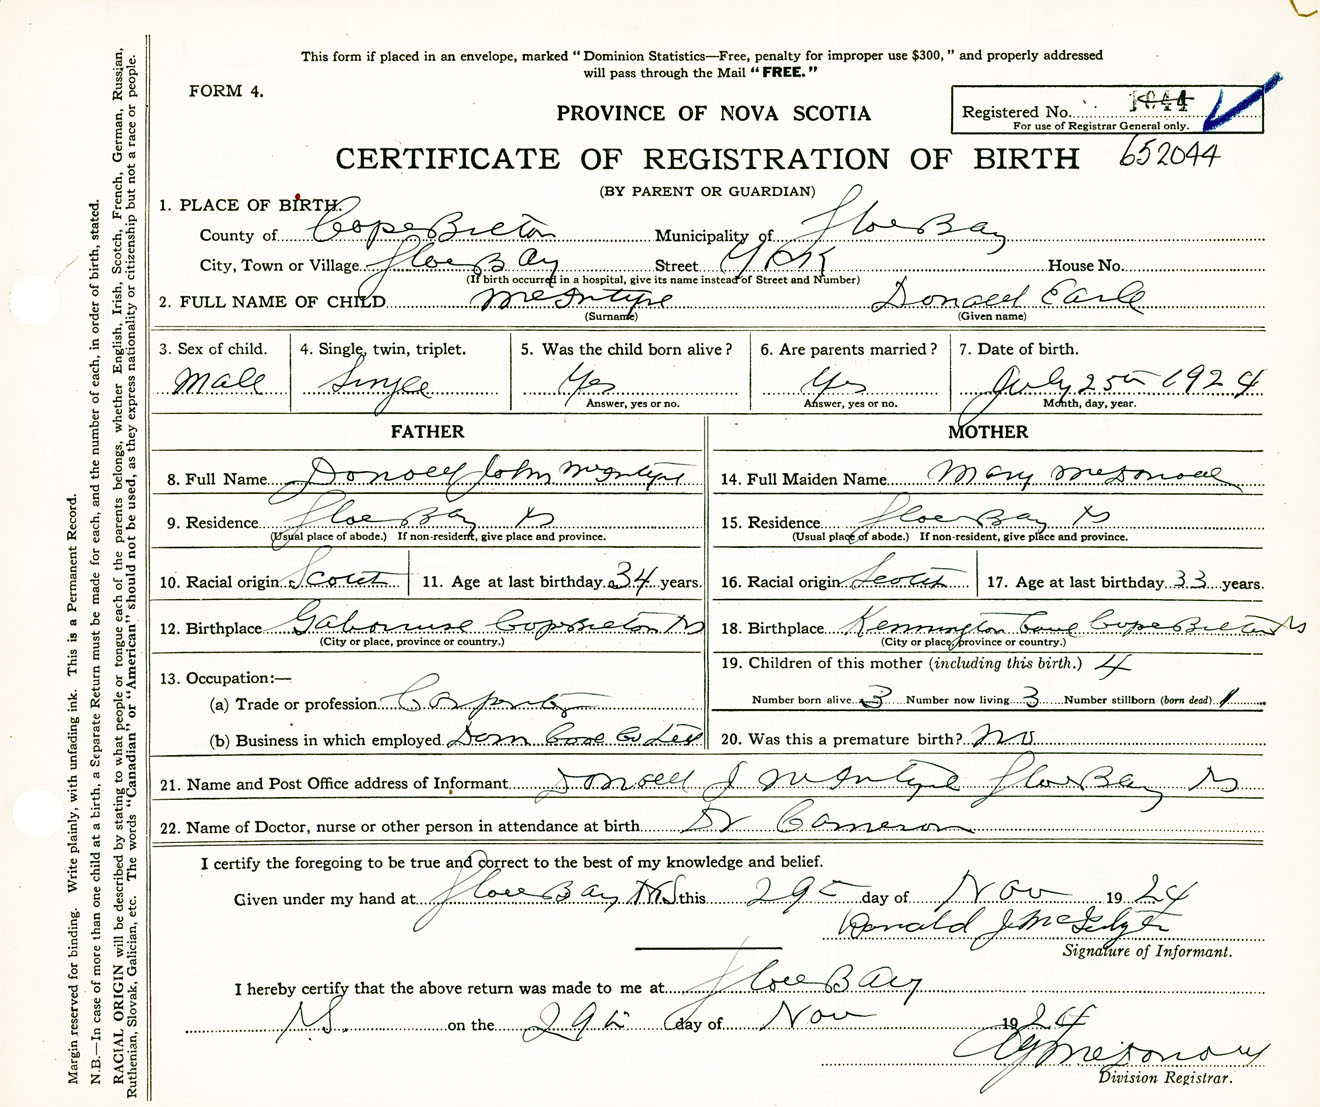 This form if placed in an envelope, marked "Dominion Statistics—Free, penalty for improper use $300," and properly addressed
will pass through the Mail "FREE."
FORM 4.
PROVINCE OF NOVA SCOTIA
Registered No. 1044
For use of Registrar General only.
CERTIFICATE OF REGISTRATION OF BIRTH 652044
(BY PARENT OR GUARDIAN)
1. PLACE OF BIRTH.
County of Cape Breton Municipality of Glace Bay
City, Town or Village Glace Bay Street York House No.
(If birth occurred in a hospital, give its name instead of Street and Number)
2. FULL NAME OF CHILD McIntyre Donald Earle
(Surname) (Given name)
3. Sex of child. 4. Single, twin, triplet. 5. Was the child born alive? 6. Are parents married? 7. Date of birth.
Male Single Yes Yes July 25th 1924
Answer, yes or no. Answer, yes or no. Month, day, year.
FATHER MOTHER
8. Full Name Donald John McIntyre 14. Full Maiden Name Mary McDonald
9. Residence Glace Bay NS 15. Residence Glace Bay NS
(Usual place of abode.) If non-resident, give place and province. (Usual place of abode.) If non-resident, give place and province.
10. Racial origin Scotch 11. Age at last birthday 34 years. 16. Racial origin Scotch 17. Age at last birthday 33 years.
12. Birthplace Gabarouse Cape Breton NS 18. Birthplace Kennington Cove Cape Breton NS
(City or place, province or country.) (City or place, province or country.)
13. Occupation:— 19. Children of this mother (including this birth.) 4
(a) Trade or profession Carpenter Number born alive 3 Number now living 3 Number stillborn (born dead) 1
(b) Business in which employed Dom Coal Co Ltd 20. Was this a premature birth? No
21. Name and Post Office address of Informant Donald J McIntyre Glace Bay NS
22. Name of Doctor, nurse or other person in attendance at birth Dr Cameron
I certify the foregoing to be true and correct to the best of my knowledge and belief.
Given under my hand at Glace Bay NS this 29th day of Nov 1924
Donald J McIntyre
Signature of Informant.
I hereby certify that the above return was made to me at Glace Bay
NS. on the 29th day of Nov 1924
McDonald
Division Registrar.
Margin reserved for binding. Write plainly, with unfading ink. This is a Permanent Record.
N.B.—In case of more than one child at a birth, a Separate Return must be made for each, and the number of each, in order of birth, stated.
RACIAL ORIGIN will be described by stating to what people or tongue each of the parents belongs, whether English, Irish, Scotch, French, German, Russian,
Ruthenian, Slovak, Galician, etc. The words "Canadian" or "American" should not be used, as they express nationality or citizenship but not a race or people.